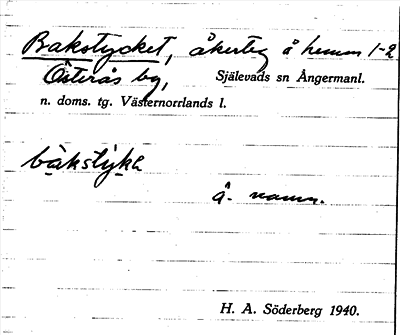 Bakstycket, åkerteg å hemm 1-2
Österås by, Själevads sn Ångermanl.
n. doms. tg. Västernorrlands l.
bàkstýkə
å. namn.
H. A. Söderberg 1940.